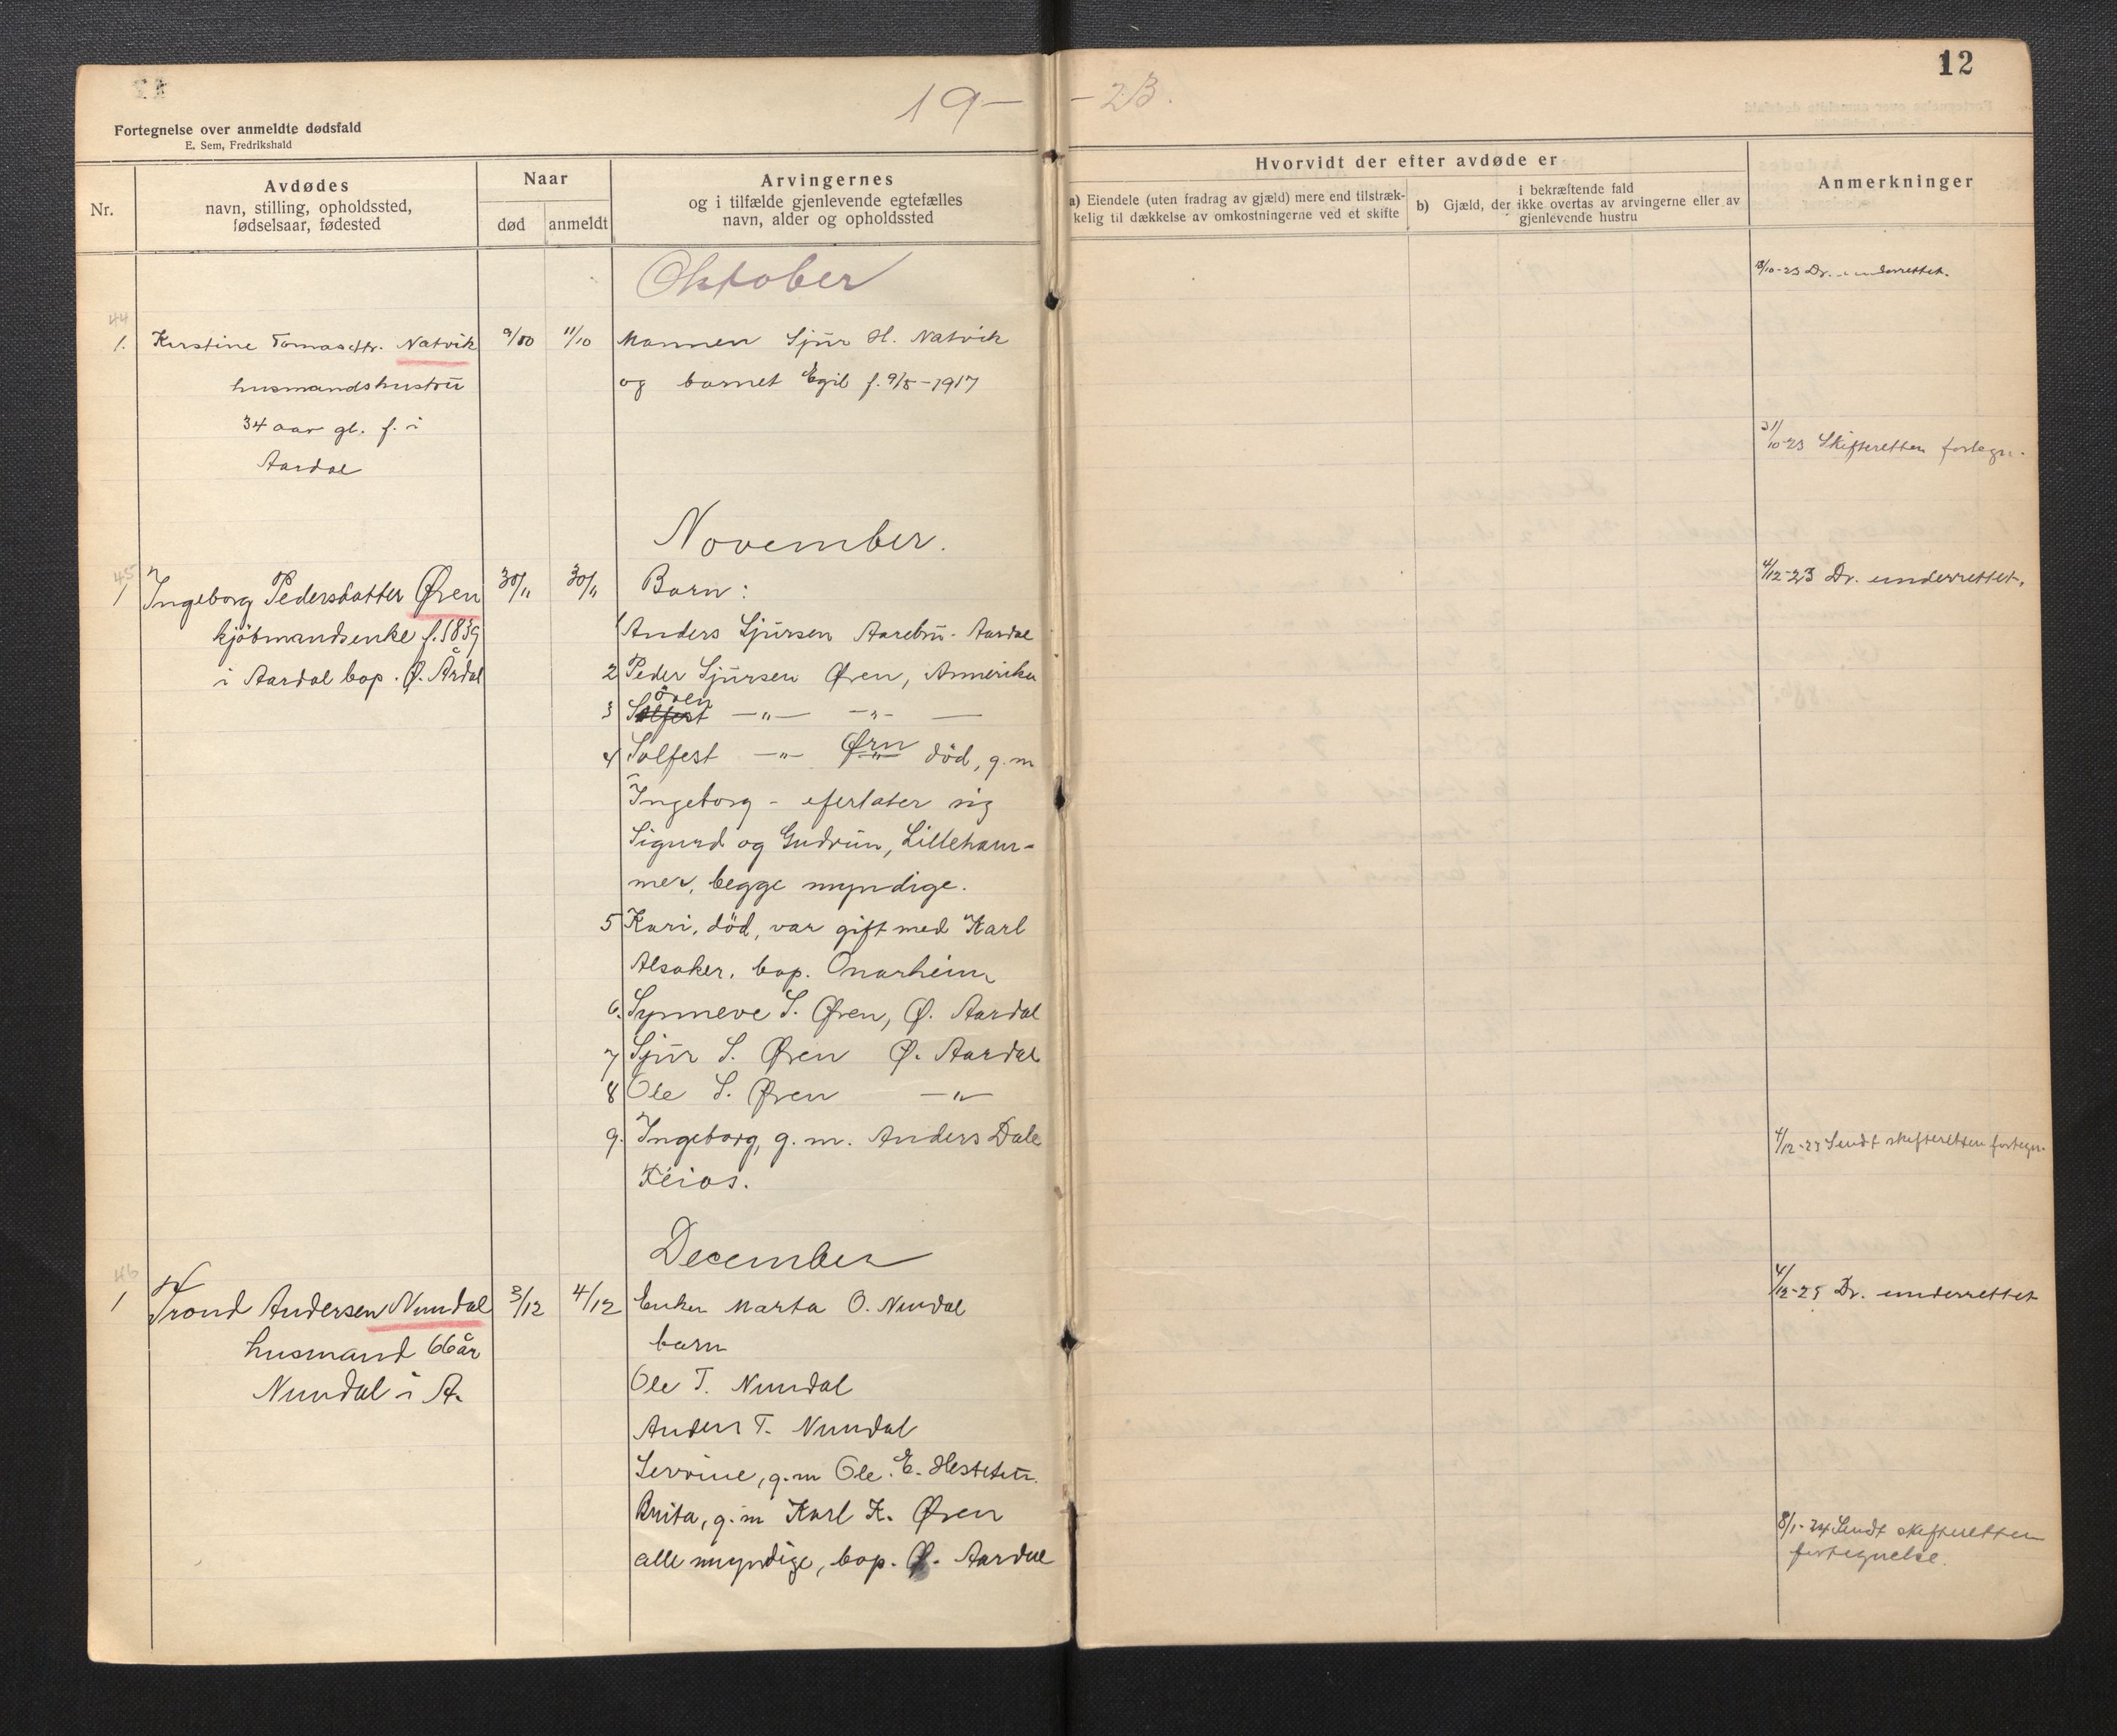 12
19– –23.
Fortegnelse over anmeldte dødsfald
E. Sem, Fredrikshald
Nr.
Avdødes
navn, stilling, opholdssted,
fødselsaar, fødested
Naar
død anmeldt
Arvingernes
og i tilfælde gjenlevende egtefælles
navn, alder og opholdssted
Hvorvidt der efter avdøde er
a) Eiendele (uten fradrag av gjæld) mere end tilstræk-
kelig til dækkelse av omkostningerne ved et skifte
i bekræftende fald
b) Gjæld, der ikke overtas av arvingerne eller av
gjenlevende hustru
Anmerkninger
Oktober
18/10-23 Dr. underrettet.
44
1. Kirstine Tomasdtr. Natvik 9/10 11/10 Mannen Sjur H. Natvik
husmandshustru og barnet Egil f. 9/5-1917
34 aar gl. f. i
Aardal
31/10-23 Skifteretten fortegn.
November.
45
1 Ingeborg Pedersdatter Øren 30/11 30/11 Barn: 4/12-23 Dr. underrettet.
kjöbmandsenke f. 1839 1 Anders Sjursen Aarebru - Aardal
i Aardal bop. Ø. Årdal 2 Peder Sjursen Øren, Amerika
3 Sölfest Sören —"— —"— —
4 Solfest —"— Ørn död, g.m
Ingeborg - eferlater sig
Sigurd og Gudrun, Lilleham-
mer, begge myndige.
5 Kari, död, var gift med Karl
Alsaker, bop. Onarheim
6. Synneve S. Øren, Ø. Aardal
7 Sjur S. Øren Ø. Aardal
8 Ole S. Øren —"—
9. Ingeborg, g.m. Anders Dale 4/12-23 Sendt skifteretten fortegn.
December
46
1 Trond Andersen Nundal 3/12 4/12 Enken Marta O. Nundal 4/12-23 Dr. underrettet
husmand 66 år barn
Nundal i A. Ole T. Nundal
Anders T. Nundal
g.m Ole. E. Hestetun.
Brita, g.m Karl K. Øren
alle myndige, bop. Ø. Aardal
8/1-24 Sendt skifteretten
fortegnelse.